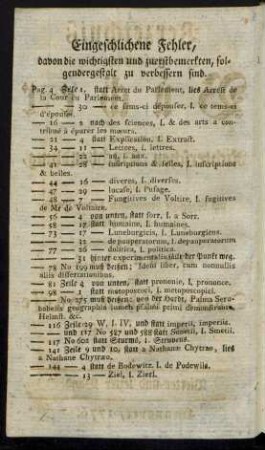 Eingeschlichene Fehler,
davon die wichtigsten und zuerst bemerkten, fol-
gendergestalt zu verbessern sind.
Pag 4 Zeile 1, statt Arret du Parlement, lies Arrest de
la Cour du Parlement.
— — — 30 — ce sems-ci déponser, l. ce tems-ci
d'épouser.
— 16 — 2 nach des sciences, l. & des arts a con-
tribué à épurer les mœurs.
— 21 — 4 statt Explication, l. Extrait.
— 34 — 11 — Lettres, l. lettres.
— — — 22 — uſ, l. nos.
— 41 — 28 — inscriptions & belles, l. inscriptions
& belles.
— 44 — 16 — diveres, l. diversos.
— 47 — 29 — lucafe, l. Pufage.
— 48 — 7 — Fungitives de Volture, l. fugitives
de Mr de Voltaire.
— 56 — 4 von unten, statt sorr, l. a Sorr.
— 58 — 17 statt humaine, l. humaines.
— 73 — 17 — Luneburgicis, l. Luneburgicos.
— — — 32 — de pauperatorum, l. depauperatorum
— 77 — 26 — dulitica, l. politica.
— — — 31 hinter experimentalis falle der Punkt weg.
— 78 No 199 muß heißen: Idem liber, cum nonnullis
aliis differtationibus.
— 81 Zeile 4 von unten, statt pronenie, l. pronance.
— 98 — — statt metoposcori, l. metoposcopici.
— — No 275 muß heißen: von der Hardt, Palma Sera-
bobaelis geographia Jonaeis psalmi primi demonstratus,
Helmst. &c.
— 116 Zeile 29 W, l. IV, und statt imperii, imperiis.
— — und 117 No 587 und 588 statt Smetii, l. Smetii.
— 117 No 602 statt Sturms, l. Struveus.
— 141 Zeile 9 und 10, statt a Nathanæ Chytræ, lies
a Nathanæ Chytræo.
— 144 — 4 statt de Bodewitz, l. de Podewils.
— — — 13 — Ziel, l. Zierl.